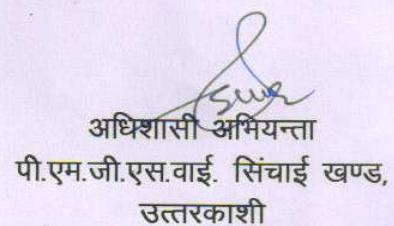 अधिशासी अभियन्ता
पी.एम.जी.एस.वाई. सिंचाई खण्ड,
उत्तरकाशी